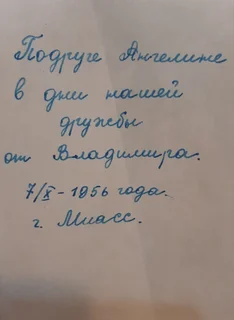 Подруге Ангелине
в дни нашей
дружбы
от Владимира.
7/X - 1956 года.
г. Миасс.